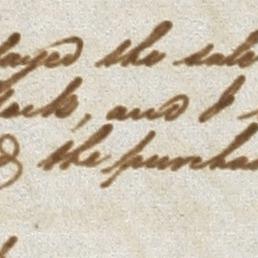 layed the sale
lock, and I
& the purchas